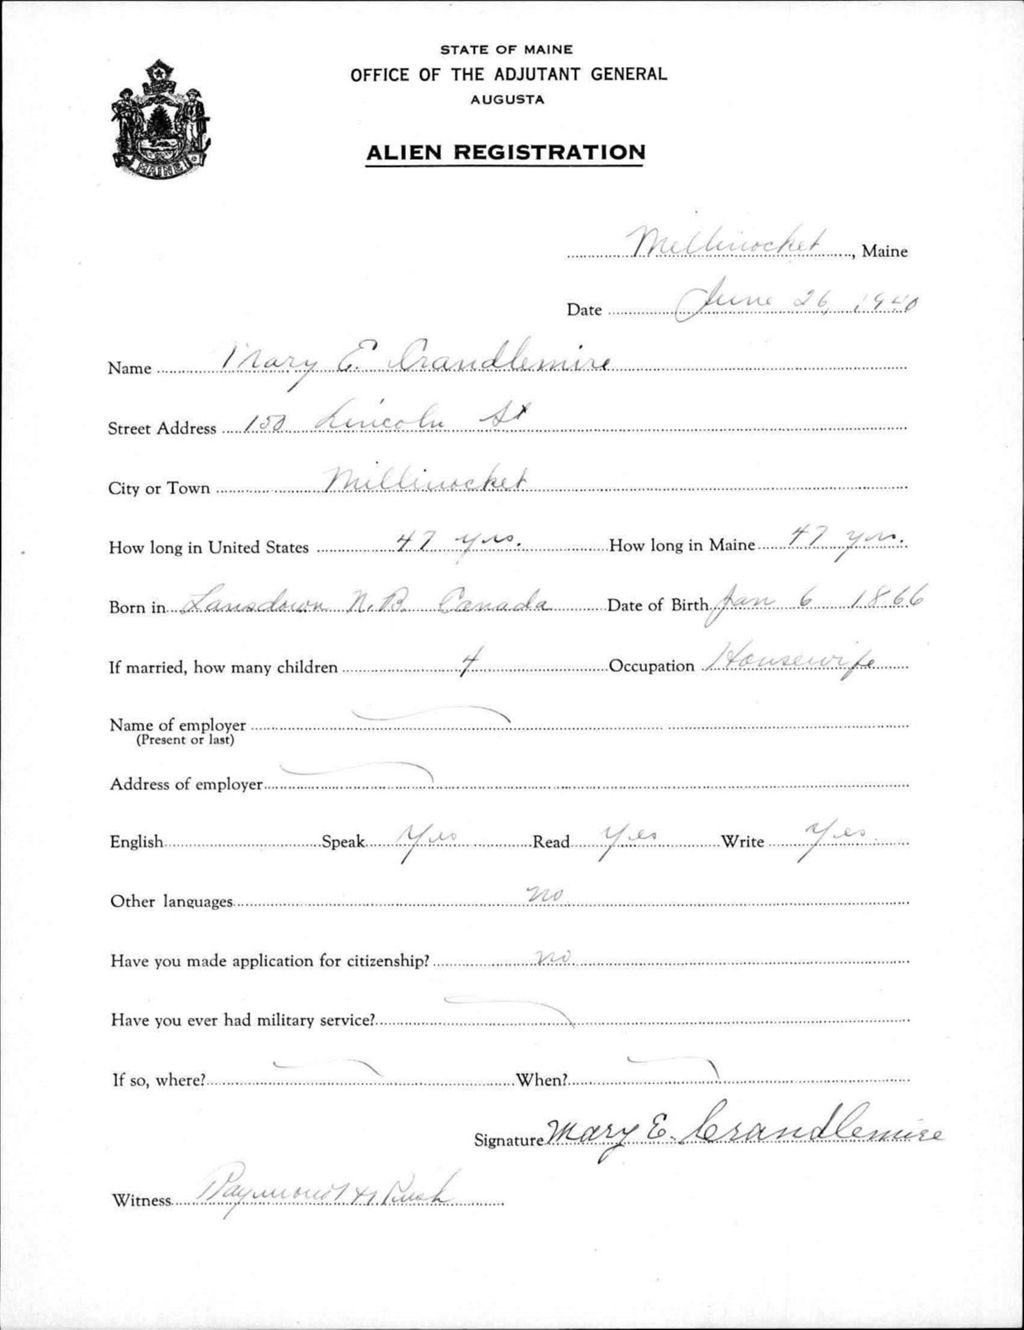 STATE OF MAINE
OFFICE OF THE ADJUTANT GENERAL
AUGUSTA
ALIEN REGISTRATION
MAINE
Millinocket, Maine
Date June 26, 1940
Name Mary E. Crandlemire
Street Address 150 Lincoln St
City or Town Millinocket
How long in United States 47 yrs. How long in Maine 47 yrs.
Born in Lansdown N.B. Canada Date of Birth Jan 6 1866
If married, how many children 4 Occupation Housewife
Name of employer
(Present or last)
Address of employer
English Speak Yes Read Yes Write Yes
Other languages no
Have you made application for citizenship? no
Have you ever had military service?
If so, where? When?
Signature Mary E. Crandlemire
Witness Raymond H Rush